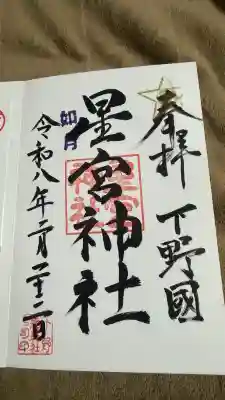 奉拝 下野國
星宮神社
如月
令和八年二月二十二日
星宮神社